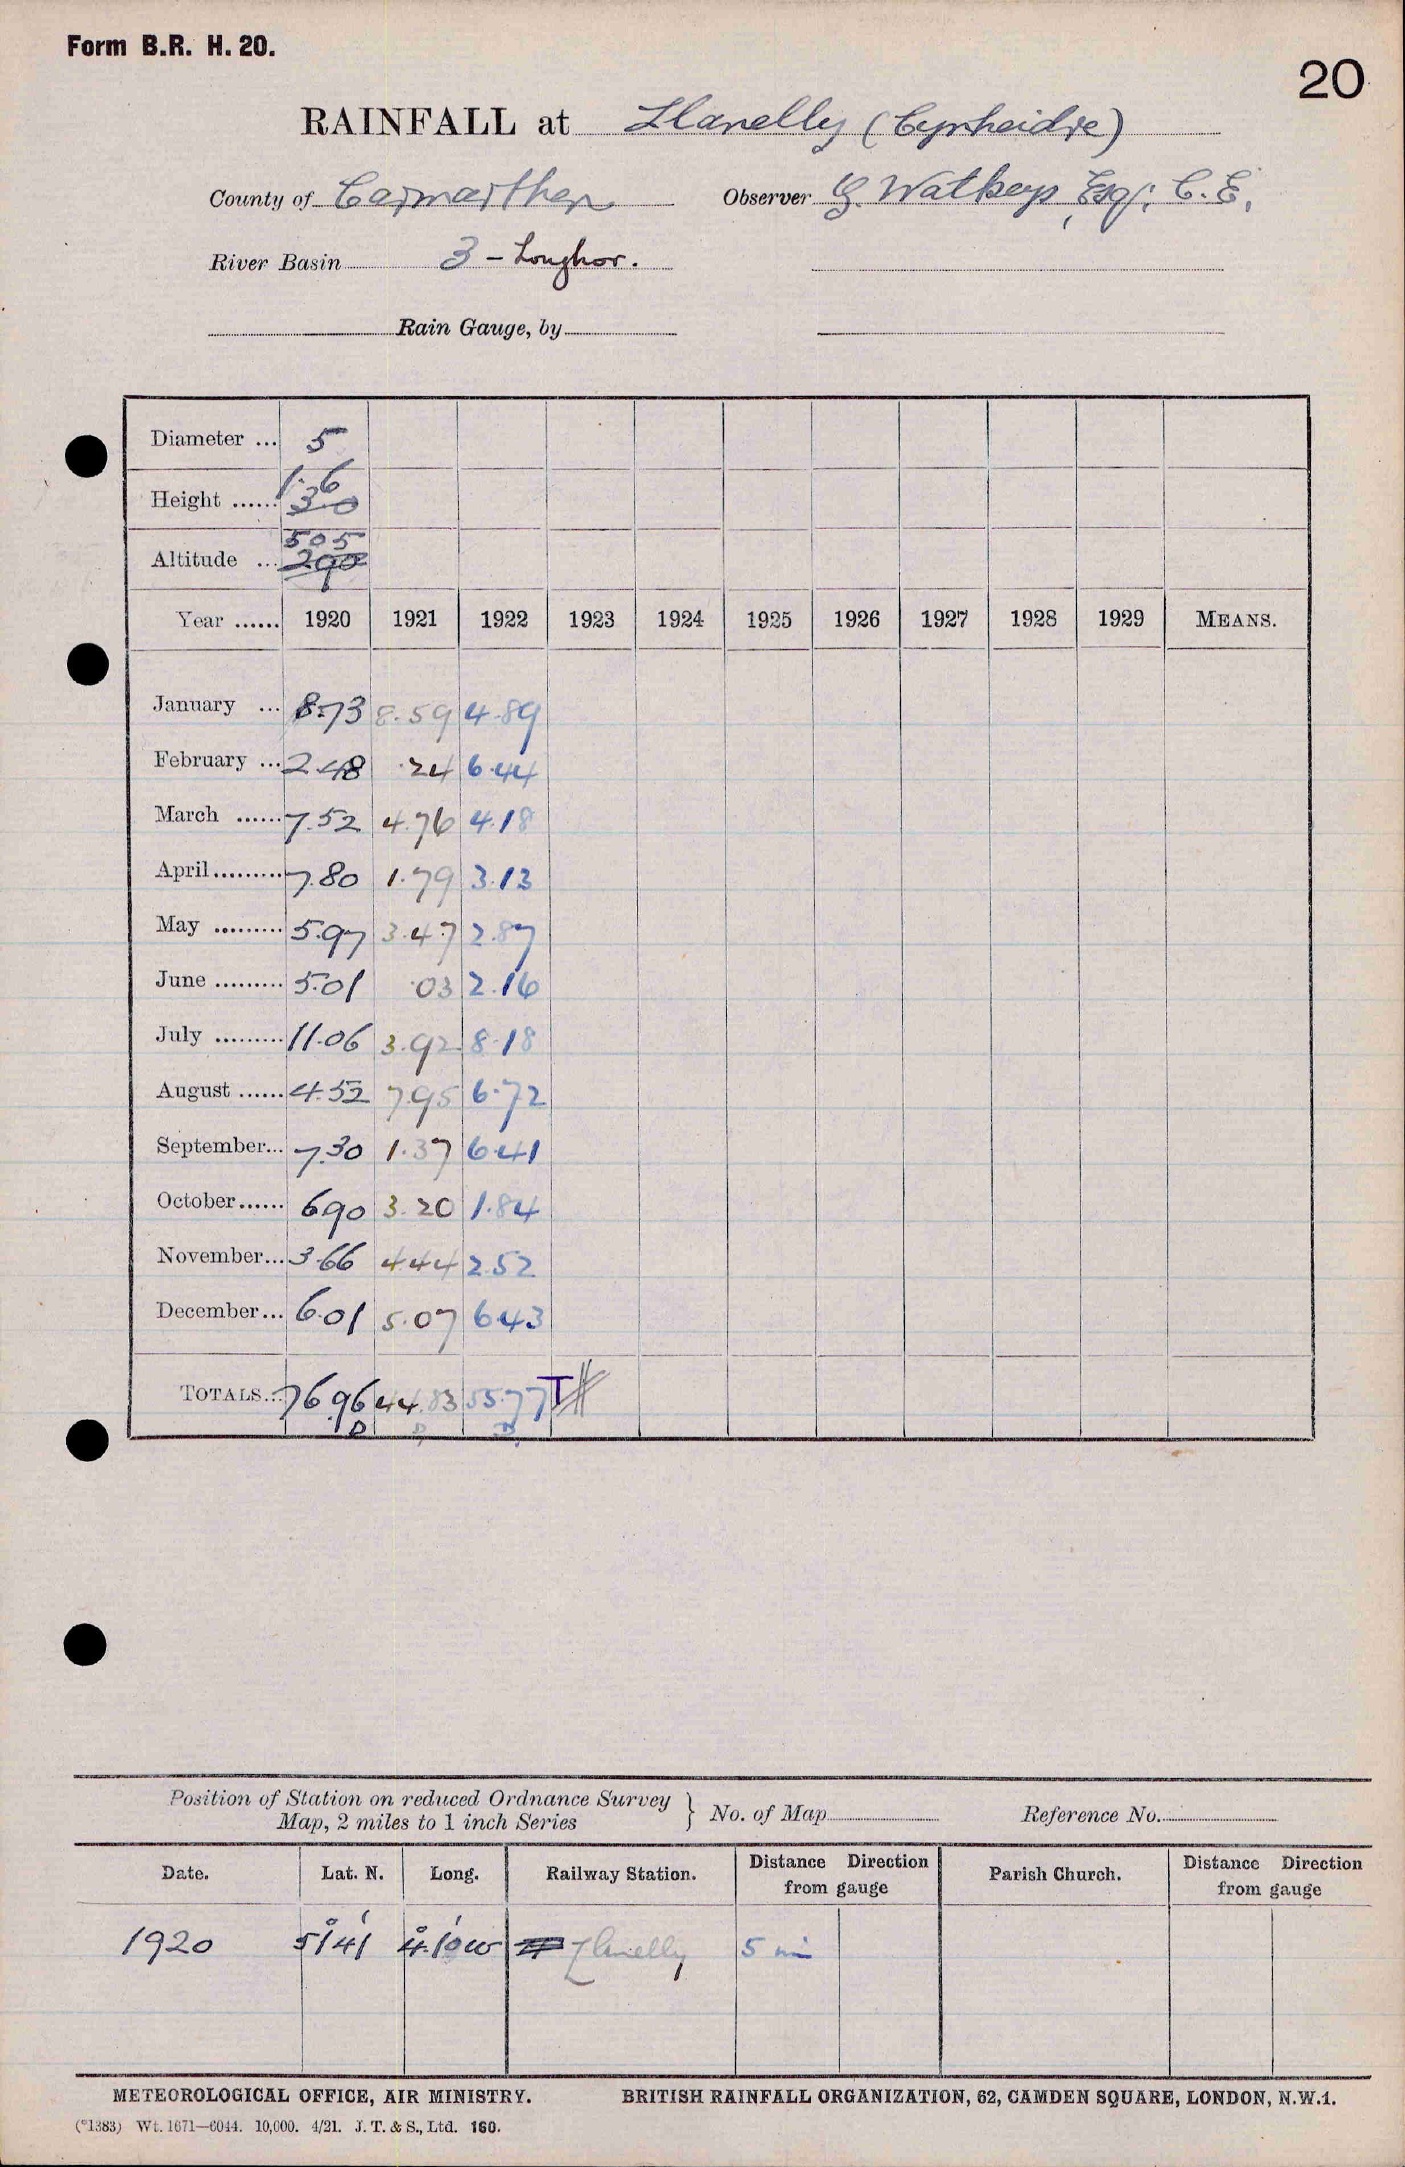 Form B.R. H. 20.
20
RAINFALL at Llanelly (Cynheidre)
County of Carmarthen Observer G. Watkeys, Esq; C.E.
River Basin 3 - Loughor.
Rain Gauge, by
Diameter ... 5
1.6
Height ...... 3.0
505
Altitude ... 290
Year ...... 1920 1921 1922 1923 1924 1925 1926 1927 1928 1929 MEANS.
January ... 8.73 8.59 4.89
February ... 2.48 .24 6.44
March ...... 7.52 4.76 4.18
April ......... 7.80 1.79 3.13
May ......... 5.97 3.47 2.87
June ......... 5.01 .03 2.16
July ......... 11.06 3.92 8.18
August ...... 4.52 7.95 6.72
September... 7.30 1.37 6.41
October ...... 6.90 3.20 1.84
November... 3.66 4.44 2.52
December... 6.01 5.07 6.43
TOTALS... 76.96 44.83 55.77 T
Position of Station on reduced Ordnance Survey
Map, 2 miles to 1 inch Series } No. of Map Reference No.
Date. Lat. N. Long. Railway Station. Distance Direction from gauge Parish Church. Distance Direction from gauge
1920 51°41' 4°10'W Llanelly 5 mi
METEOROLOGICAL OFFICE, AIR MINISTRY. BRITISH RAINFALL ORGANIZATION, 62, CAMDEN SQUARE, LONDON, N.W.1.
(*1383) Wt. 1671—6044. 10,000. 4/21. J. T. & S., Ltd. 160.